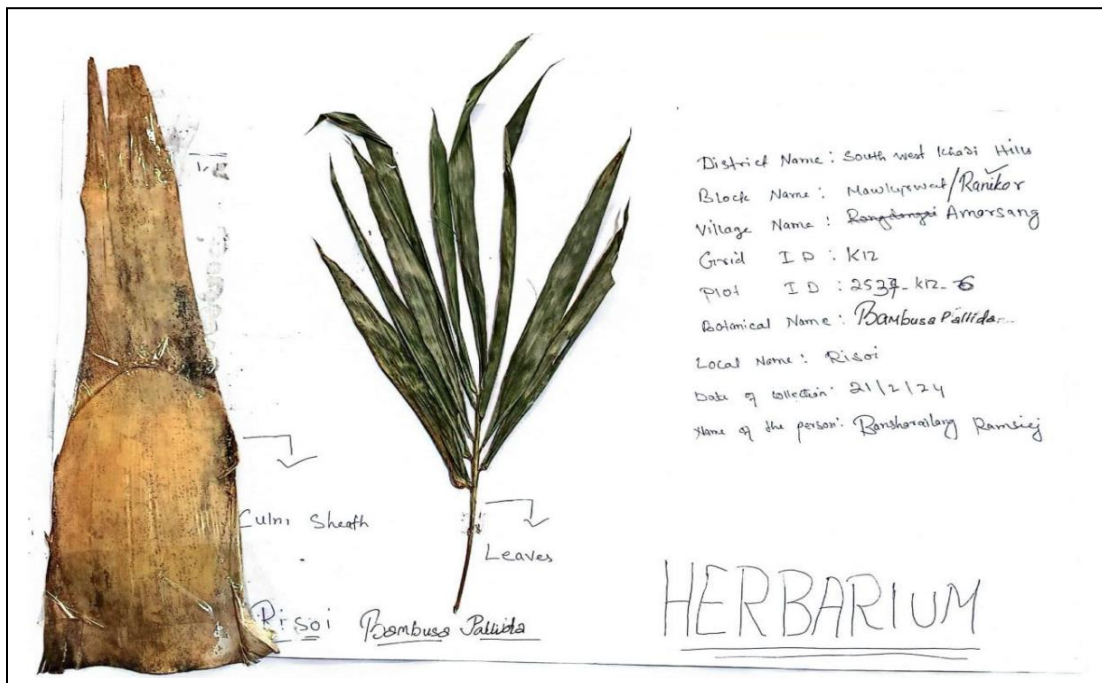 District Name : South west Khasi Hills
Block Name : Mawkyrwat/Ranikor
Village Name : Amarsang
Grid ID : K12
Plot ID : K12
Botanical Name : Bambusa Pallida
Local Name : Risoi
Date of collection : 21/2/24
Name of the person : Ramsiej
Culm Sheath
Leaves
Risoi Bambusa Pallida
HERBARIUM